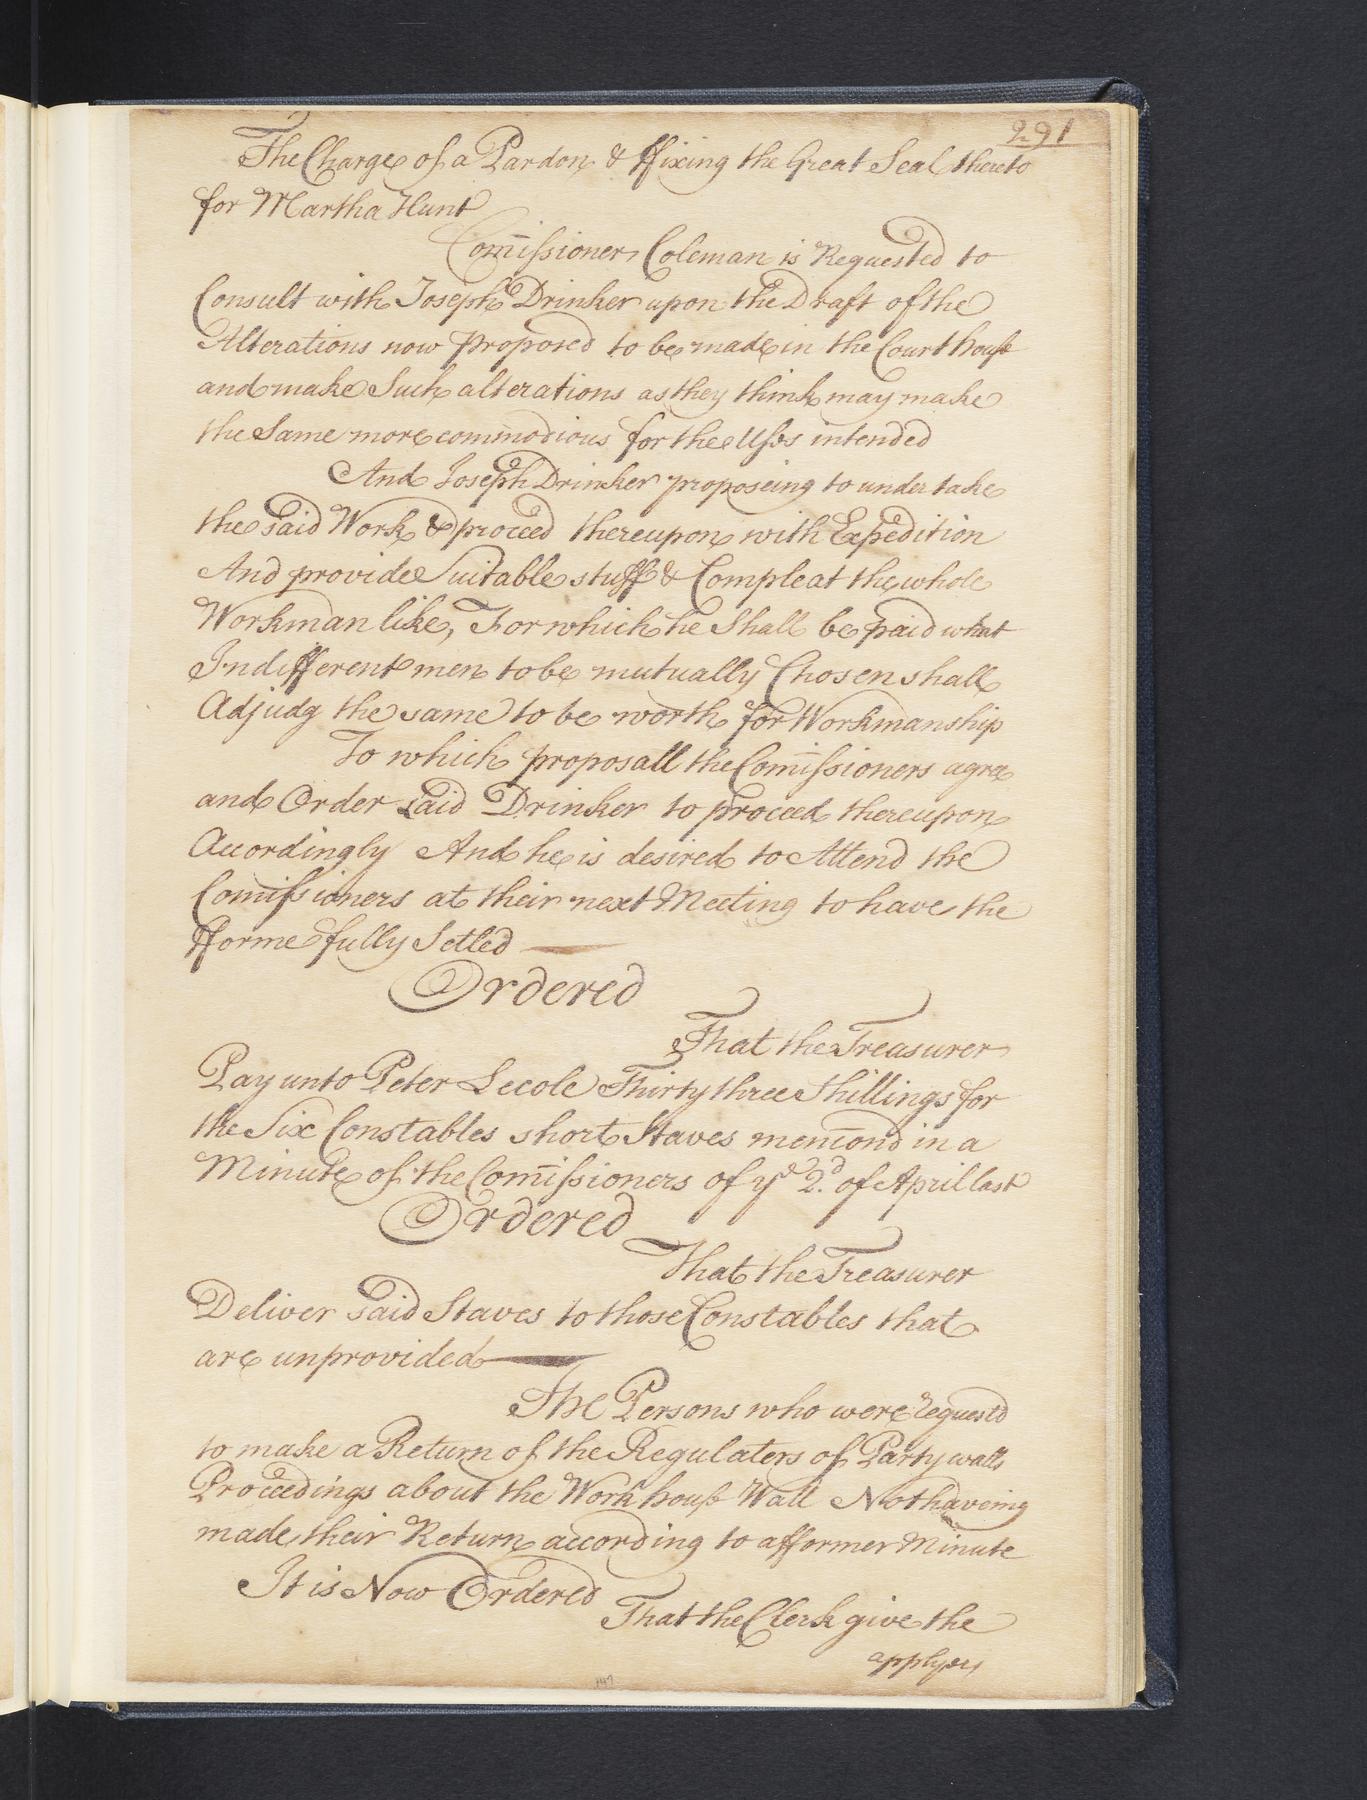 291
The Charge of a Pardon & ffixing the Great Seal thereto
for Martha Hunt
Com̅issioner Coleman is Requested to
Consult with Joseph Drinker upon the Draft of the
Alterations now proposed to be made in the Court house
and make Such alterations as they think may make
the Same more commodious for the Uses intended
And Joseph Drinker proposeing to under take
the said Work & proceed thereupon with Expedition
And provide Suitable stuff & Compleat the whole
Workman like, For which he Shall be paid what
Indifferent men to be mutually Chosen shall
Adjudg the same to be worth for Workmanship
To which proposall the Com̅issioners agree
and Order said Drinker to proceed thereupon
Accordingly And he is desired to Attend the
Com̅issioners at their next Meeting to have the
fforme fully Setled
Ordered
That the Treasurer
Pay unto Peter Lecole Thirty three Shillings for
the Six Constables short Staves menc̅ond in a
Minute of the Com̅issioners of yᵉ 2.ᵈ of April last
Ordered
That the Treasurer
Deliver said Staves to those Constables that
are unprovided
The Persons who were requestd
to make a Return of the Regulaters of Party walls
Proceedings about the Work house Wall Not haveing
made their Return according to a fformer Minute
It is Now Ordered
That the Clerk give the
147